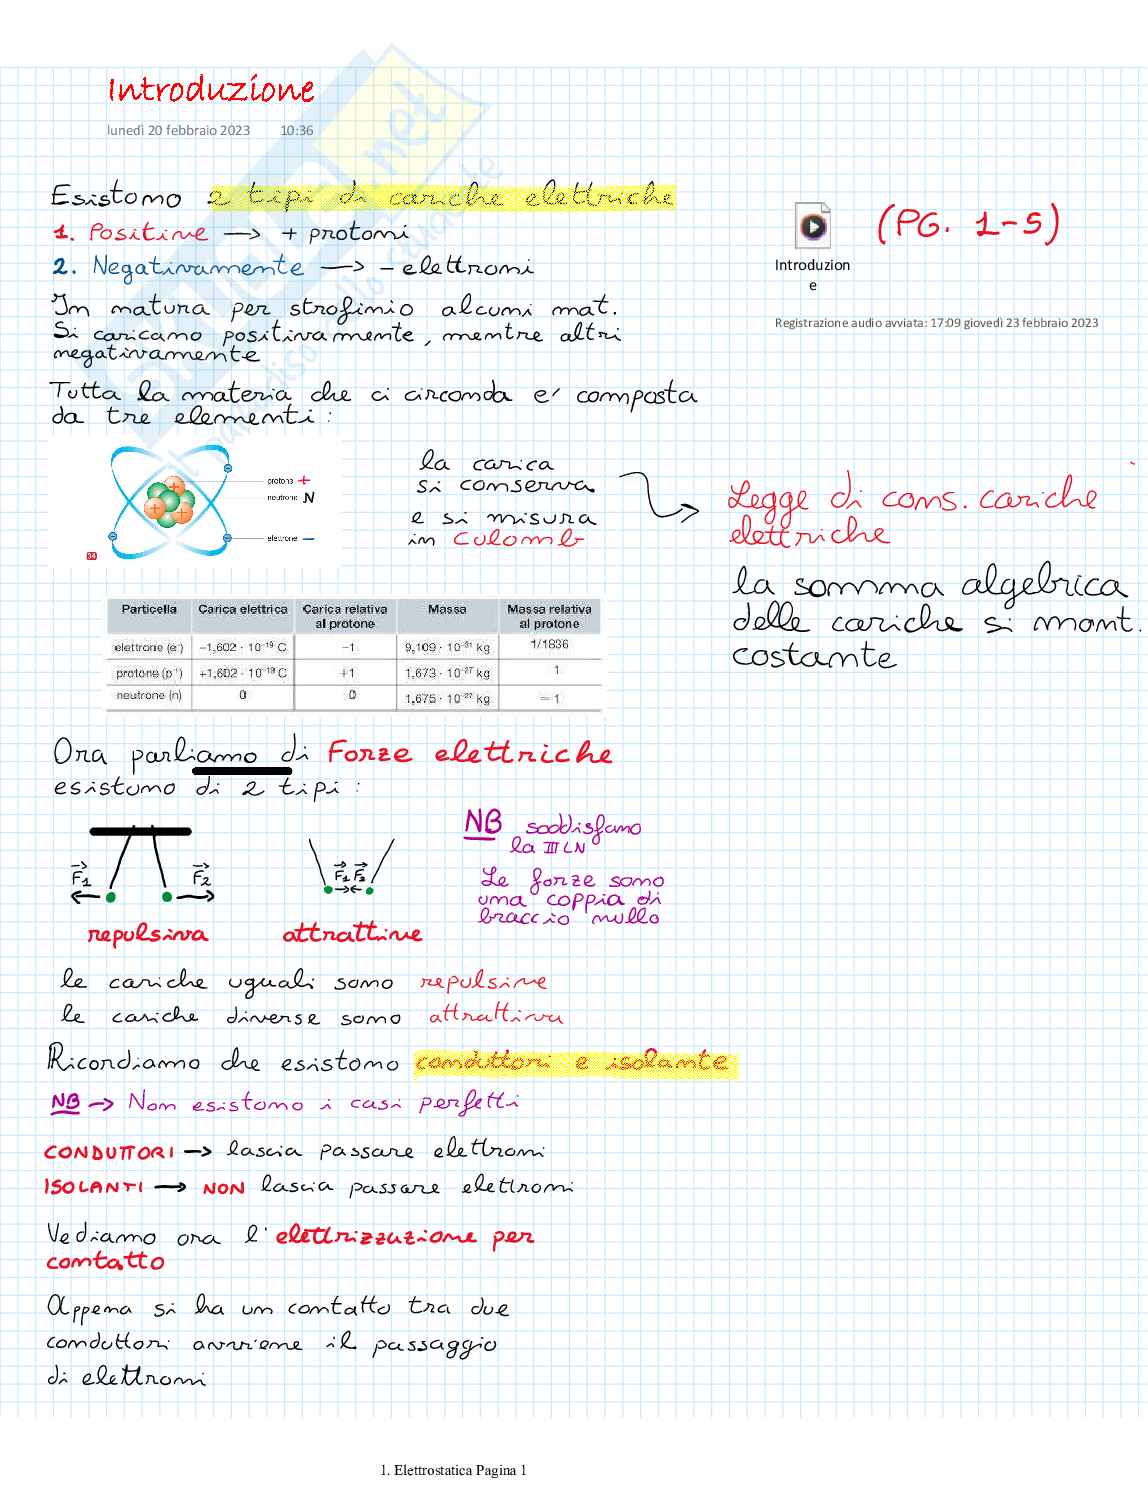 Introduzione
lunedì 20 febbraio 2023 10:36
Esistono 2 tipi di cariche elettriche
1. Positive → + protoni
2. Negativamente → - elettroni
In natura per strofinio alcuni mat.
Si caricano positivamente, mentre altri
negativamente
Introduzion
e
(PG. 1-5)
Registrazione audio avviata: 17:09 giovedì 23 febbraio 2023
Tutta la materia che ci circonda e' composta
da tre elementi:
protone +
neutrone N
elettrone -
34
la carica
si conserva
e si misura
in Culomb
Legge di cons. cariche
elettriche
la somma algebrica
delle cariche si mant.
costante
Particella Carica elettrica Carica relativa al protone Massa Massa relativa al protone
elettrone (e⁻) −1,602 · 10⁻¹⁹ C −1 9,109 · 10⁻³¹ kg 1/1836
protone (p⁺) +1,602 · 10⁻¹⁹ C +1 1,673 · 10⁻²⁷ kg 1
neutrone (n) 0 0 1,675 · 10⁻²⁷ kg ≈ 1
Ora parliamo di Forze elettriche
esistono di 2 tipi:
F1 F2
F1 F2
repulsiva attrattive
NB soddisfano
la III LN
Le forze sono
una coppia di
braccio nullo
le cariche uguali sono repulsive
le cariche diverse sono attrattiva
Ricordiamo che esistono conduttori e isolante
NB → Non esistono i casi perfetti
CONDUTTORI → lascia passare elettroni
ISOLANTI → NON lascia passare elettroni
Vediamo ora l'elettrizzazione per
contatto
Appena si ha un contatto tra due
conduttori avviene il passaggio
di elettroni
1. Elettrostatica Pagina 1